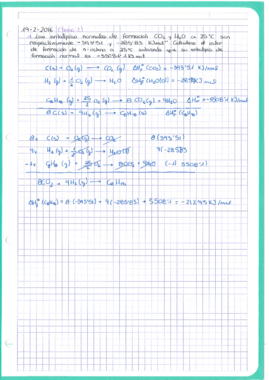 19-2-2016 (Tema 2)
1. Las entalpías normales de formación CO₂ y H₂O a 25 ºC son
respectivamente -393'51 y -285'83 KJ/mol. Calcúlese el calor
de formación de n-octano a 25ºC sabiendo que su entalpía de
formación normal es -5508'1 KJ/mol
C(s) + O₂(g) → CO₂ (g) ΔHf° (CO₂) = -393'51 KJ/mol
H₂ (g) + ½ O₂ (g) → H₂O ΔHf° (H₂O(l)) = -285'83 KJ/mol
C₈H₁₈ (g) + 25/2 O₂ (g) → 8 CO₂ (g) + 9H₂O = -5508'1 KJ/mol
8 C(s) + 9H₂ (g) → C₈H₁₈ ΔHf° (C₈H₁₈)
8x C(s) + O₂(g) → CO₂ 8(-393'51)
9x H₂(g) + ½ O₂(g) → H₂O 9(-285'83)
-1x C₈H₁₈ (g) + 25/2 O₂ → 8CO₂ + 9H₂O (-1) 5508'1)
8CO₂ + 9H₂(g) → C₈H₁₈
ΔHf° (C₈H₁₈) = 8 (-393'51) + 9(-285'83) + 5508'1 = -212'45 KJ/mol